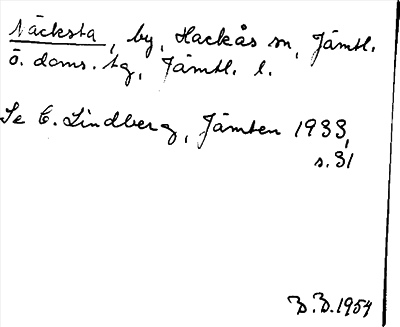 Näcksta, by, Hackås sn, Jämtl.
ö. doms. tg, Jämtl. l.
Se E. Lindberg, Jämten 1933,
s. 31
B.B. 1954